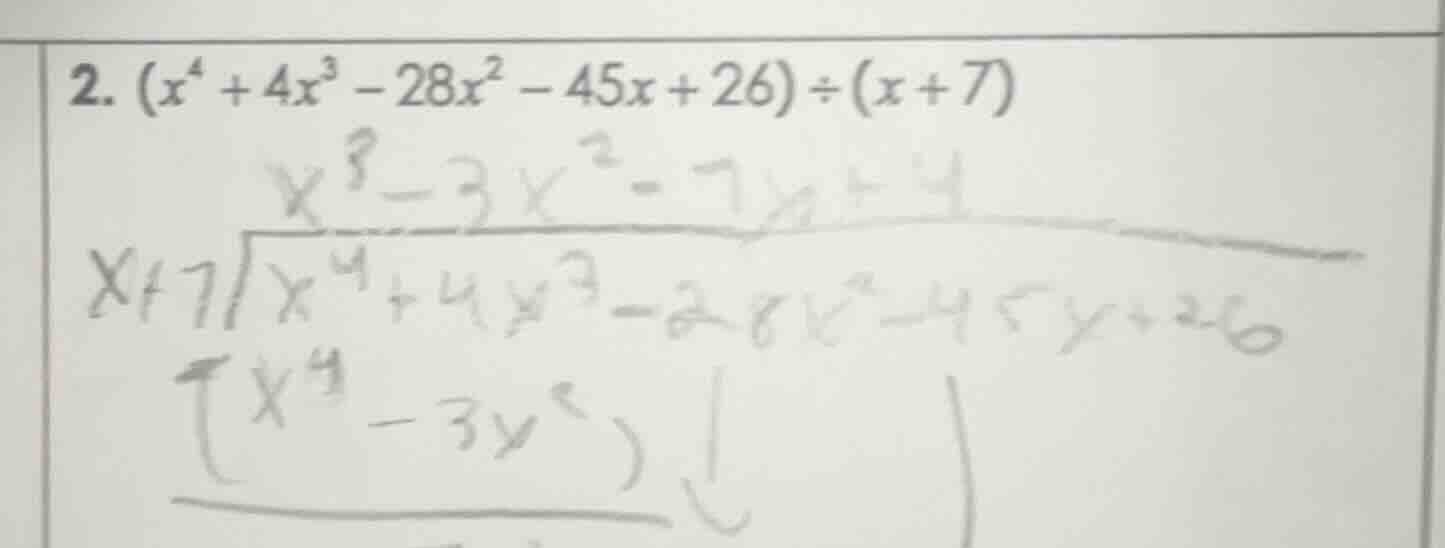 2. (x⁴ + 4x³ − 28x² − 45x + 26) ÷ (x + 7)
x³ − 3x² - 7x + 4
x+7 x⁴ + 4x³ − 28x² − 45x + 26
-(x⁴ − 3x³)